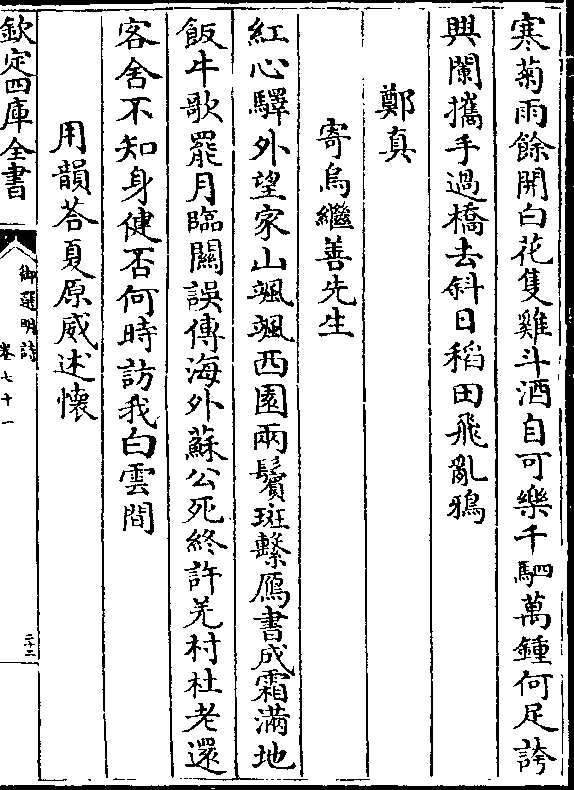 寒菊雨餘開白花隻雞斗酒自可樂千駟萬鍾何足誇
興闌攜手過橋去斜日稻田飛亂鴉
鄭真
寄烏繼善先生
紅心驛外望家山颯颯西園兩鬢斑繫鴈書成霜滿地
飯牛歌罷月臨關誤傳海外蘇公死終許羌村杜老還
客舍不知身健否何時訪我白雲間
用韻荅夏原威述懷
欽定四庫全書
御選明詩
卷七十一
二十三